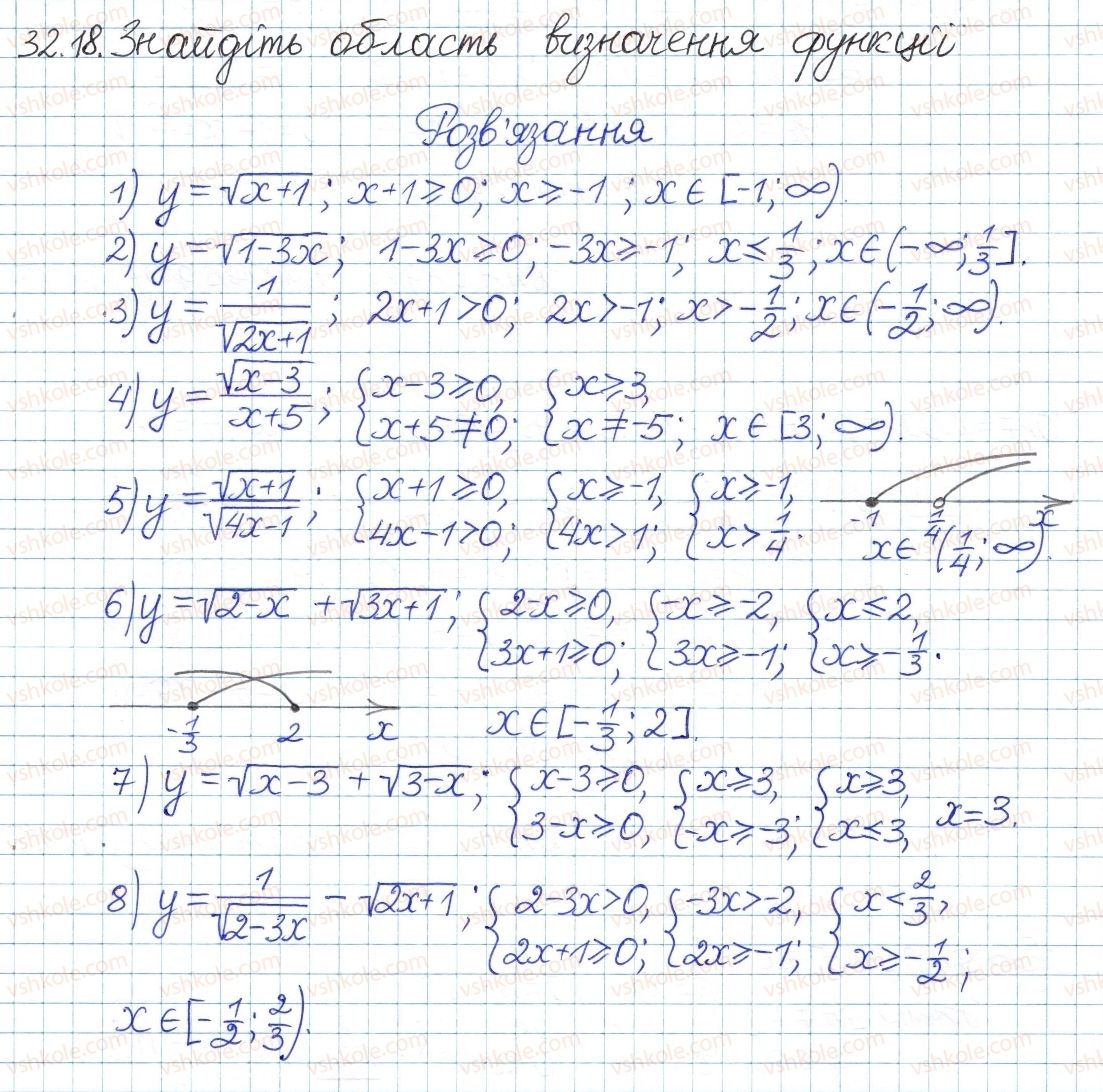 32.18. Знайдіть область визначення функції
Розв'язання
1) y = √(x+1); x+1≥0; x≥-1; x∈[-1;∞).
2) y = √(1-3x); 1-3x≥0; -3x≥-1; x≤1/3; x∈(-∞;1/3].
3) y = 1/√(2x+1); 2x+1>0; 2x>-1; x>-1/2; x∈(-1/2;∞).
4) y = √(x-3)/(x+5); {x-3≥0, x+5≠0; {x≥3, x≠-5; x∈[3;∞).
5) y = √(x+1)/√(4x-1); {x+1≥0, 4x-1>0; {x≥-1, 4x>1; {x≥-1, x>1/4.
-1 1/4 x
x∈(1/4;∞).
6) y = √(2-x) + √(3x+1); {2-x≥0, 3x+1≥0; {-x≥-2, 3x≥-1; {x≤2, x≥-1/3.
-1/3 2 x x∈[-1/3;2].
7) y = √(x-3) + √(3-x); {x-3≥0, 3-x≥0, {x≥3, -x≥-3; {x≥3, x≤3, x=3.
8) y = 1/√(2-3x) - √(2x+1); {2-3x>0, 2x+1≥0; {-3x>-2, 2x≥-1; {x<2/3, x≥-1/2;
x∈[-1/2;2/3).